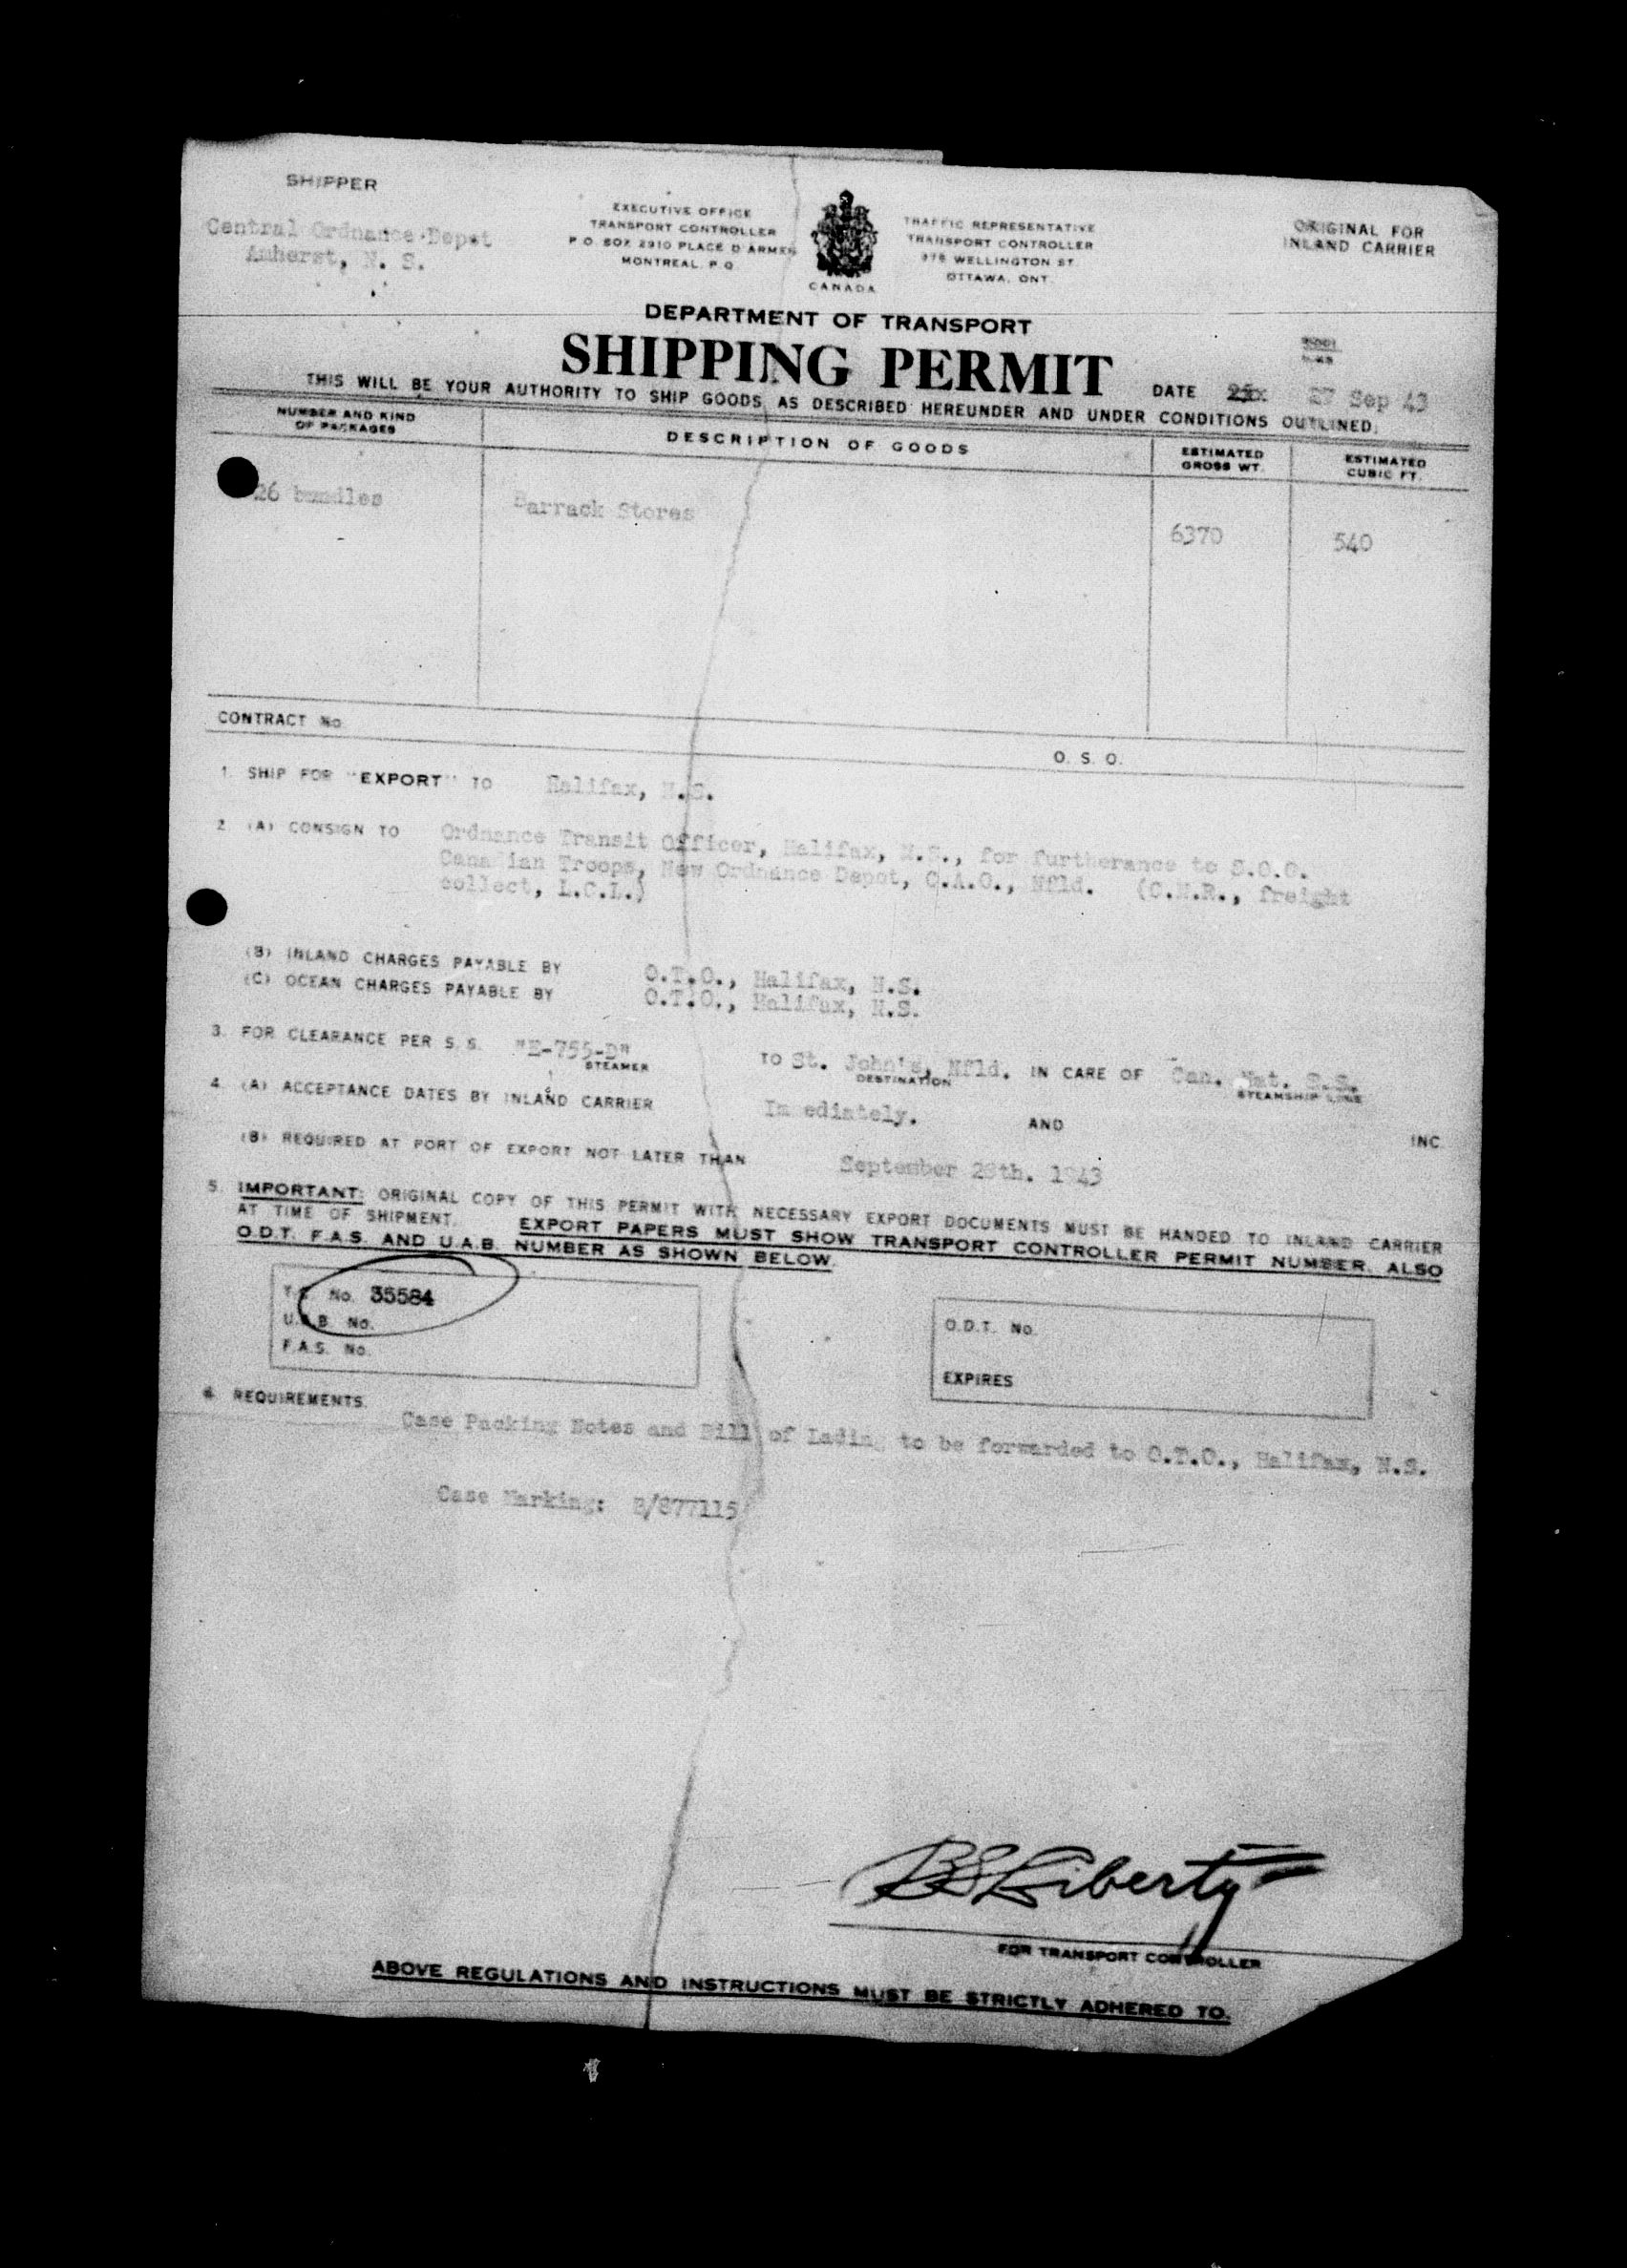 SHIPPER
Central Ordnance Depot
Amherst, N. S.
EXECUTIVE OFFICE
TRANSPORT CONTROLLER
P.O. BOX 2910 PLACE D ARMES
MONTREAL, P.Q.
CANADA
TRAFFIC REPRESENTATIVE
TRANSPORT CONTROLLER
WELLINGTON ST.
OTTAWA, ONT.
ORIGINAL FOR
INLAND CARRIER
DEPARTMENT OF TRANSPORT
SHIPPING PERMIT
DATE 27 Sep 43
THIS WILL BE YOUR AUTHORITY TO SHIP GOODS AS DESCRIBED HEREUNDER AND UNDER CONDITIONS OUTLINED.
NUMBER AND KIND
OF PACKAGES
DESCRIPTION OF GOODS
ESTIMATED
GROSS WT.
ESTIMATED
CUBIC FT.
26 bundles
Barrack Stores
6370
540
CONTRACT No.
O. S. O.
1. SHIP FOR "EXPORT" TO Halifax, N.S.
2. (A) CONSIGN TO Ordnance Transit Officer, Halifax, N.S., for furtherance to S.O.O.
Canadian Troops, New Ordnance Depot, C.A.O., Nfld. (C.N.R., freight
collect, L.C.L.)
(B) INLAND CHARGES PAYABLE BY O.T.O., Halifax, N.S.
(C) OCEAN CHARGES PAYABLE BY O.T.O., Halifax, N.S.
3. FOR CLEARANCE PER S. S. "E-755-D" TO St. John's, Nfld. IN CARE OF Can. Nat. S.S.
STEAMER DESTINATION STEAMSHIP LINE
4. (A) ACCEPTANCE DATES BY INLAND CARRIER Immediately. AND INC.
(B) REQUIRED AT PORT OF EXPORT NOT LATER THAN September 28th. 1943
5. IMPORTANT: ORIGINAL COPY OF THIS PERMIT WITH NECESSARY EXPORT DOCUMENTS MUST BE HANDED TO INLAND CARRIER
AT TIME OF SHIPMENT. EXPORT PAPERS MUST SHOW TRANSPORT CONTROLLER PERMIT NUMBER, ALSO
O.D.T. F.A.S. AND U.A.B. NUMBER AS SHOWN BELOW.
T.C. No. 35584
U.A.B. No.
F.A.S. No.
O.D.T. No.
EXPIRES
REQUIREMENTS.
Case Packing Notes and Bill of Lading to be forwarded to O.T.O., Halifax, N.S.
Case Marking: B/877115
BS Liberty
FOR TRANSPORT CONTROLLER
ABOVE REGULATIONS AND INSTRUCTIONS MUST BE STRICTLY ADHERED TO.